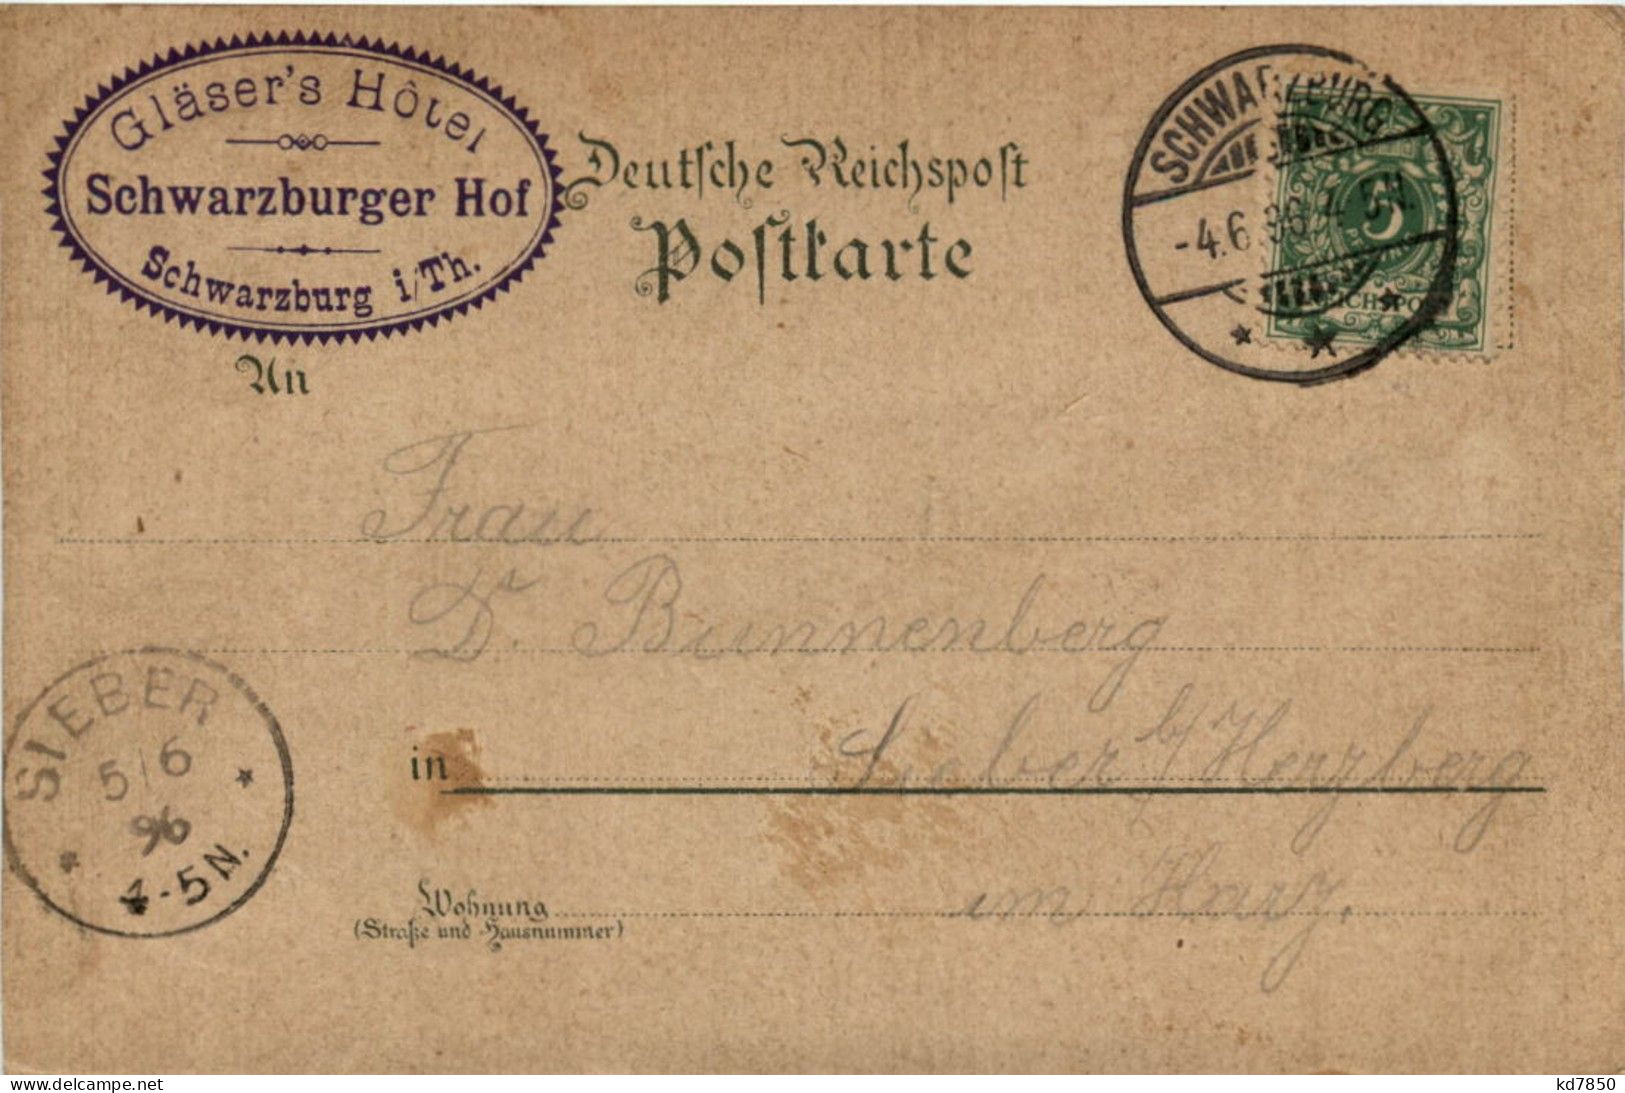 Gläser's Hôtel
Schwarzburger Hof
Schwarzburg i/Th.
Deutsche Reichspost
Postkarte
SCHWARZBURG
-4.6.96. 4-5N.
5
REICHSPOST
An
Frau
Dr. Bunnenberg
in Sieber b/Herzberg
Wohnung im Harz.
(Straße und Hausnummer)
SIEBER
5/6
96
4-5N.
www.delcampe.net
kd7850